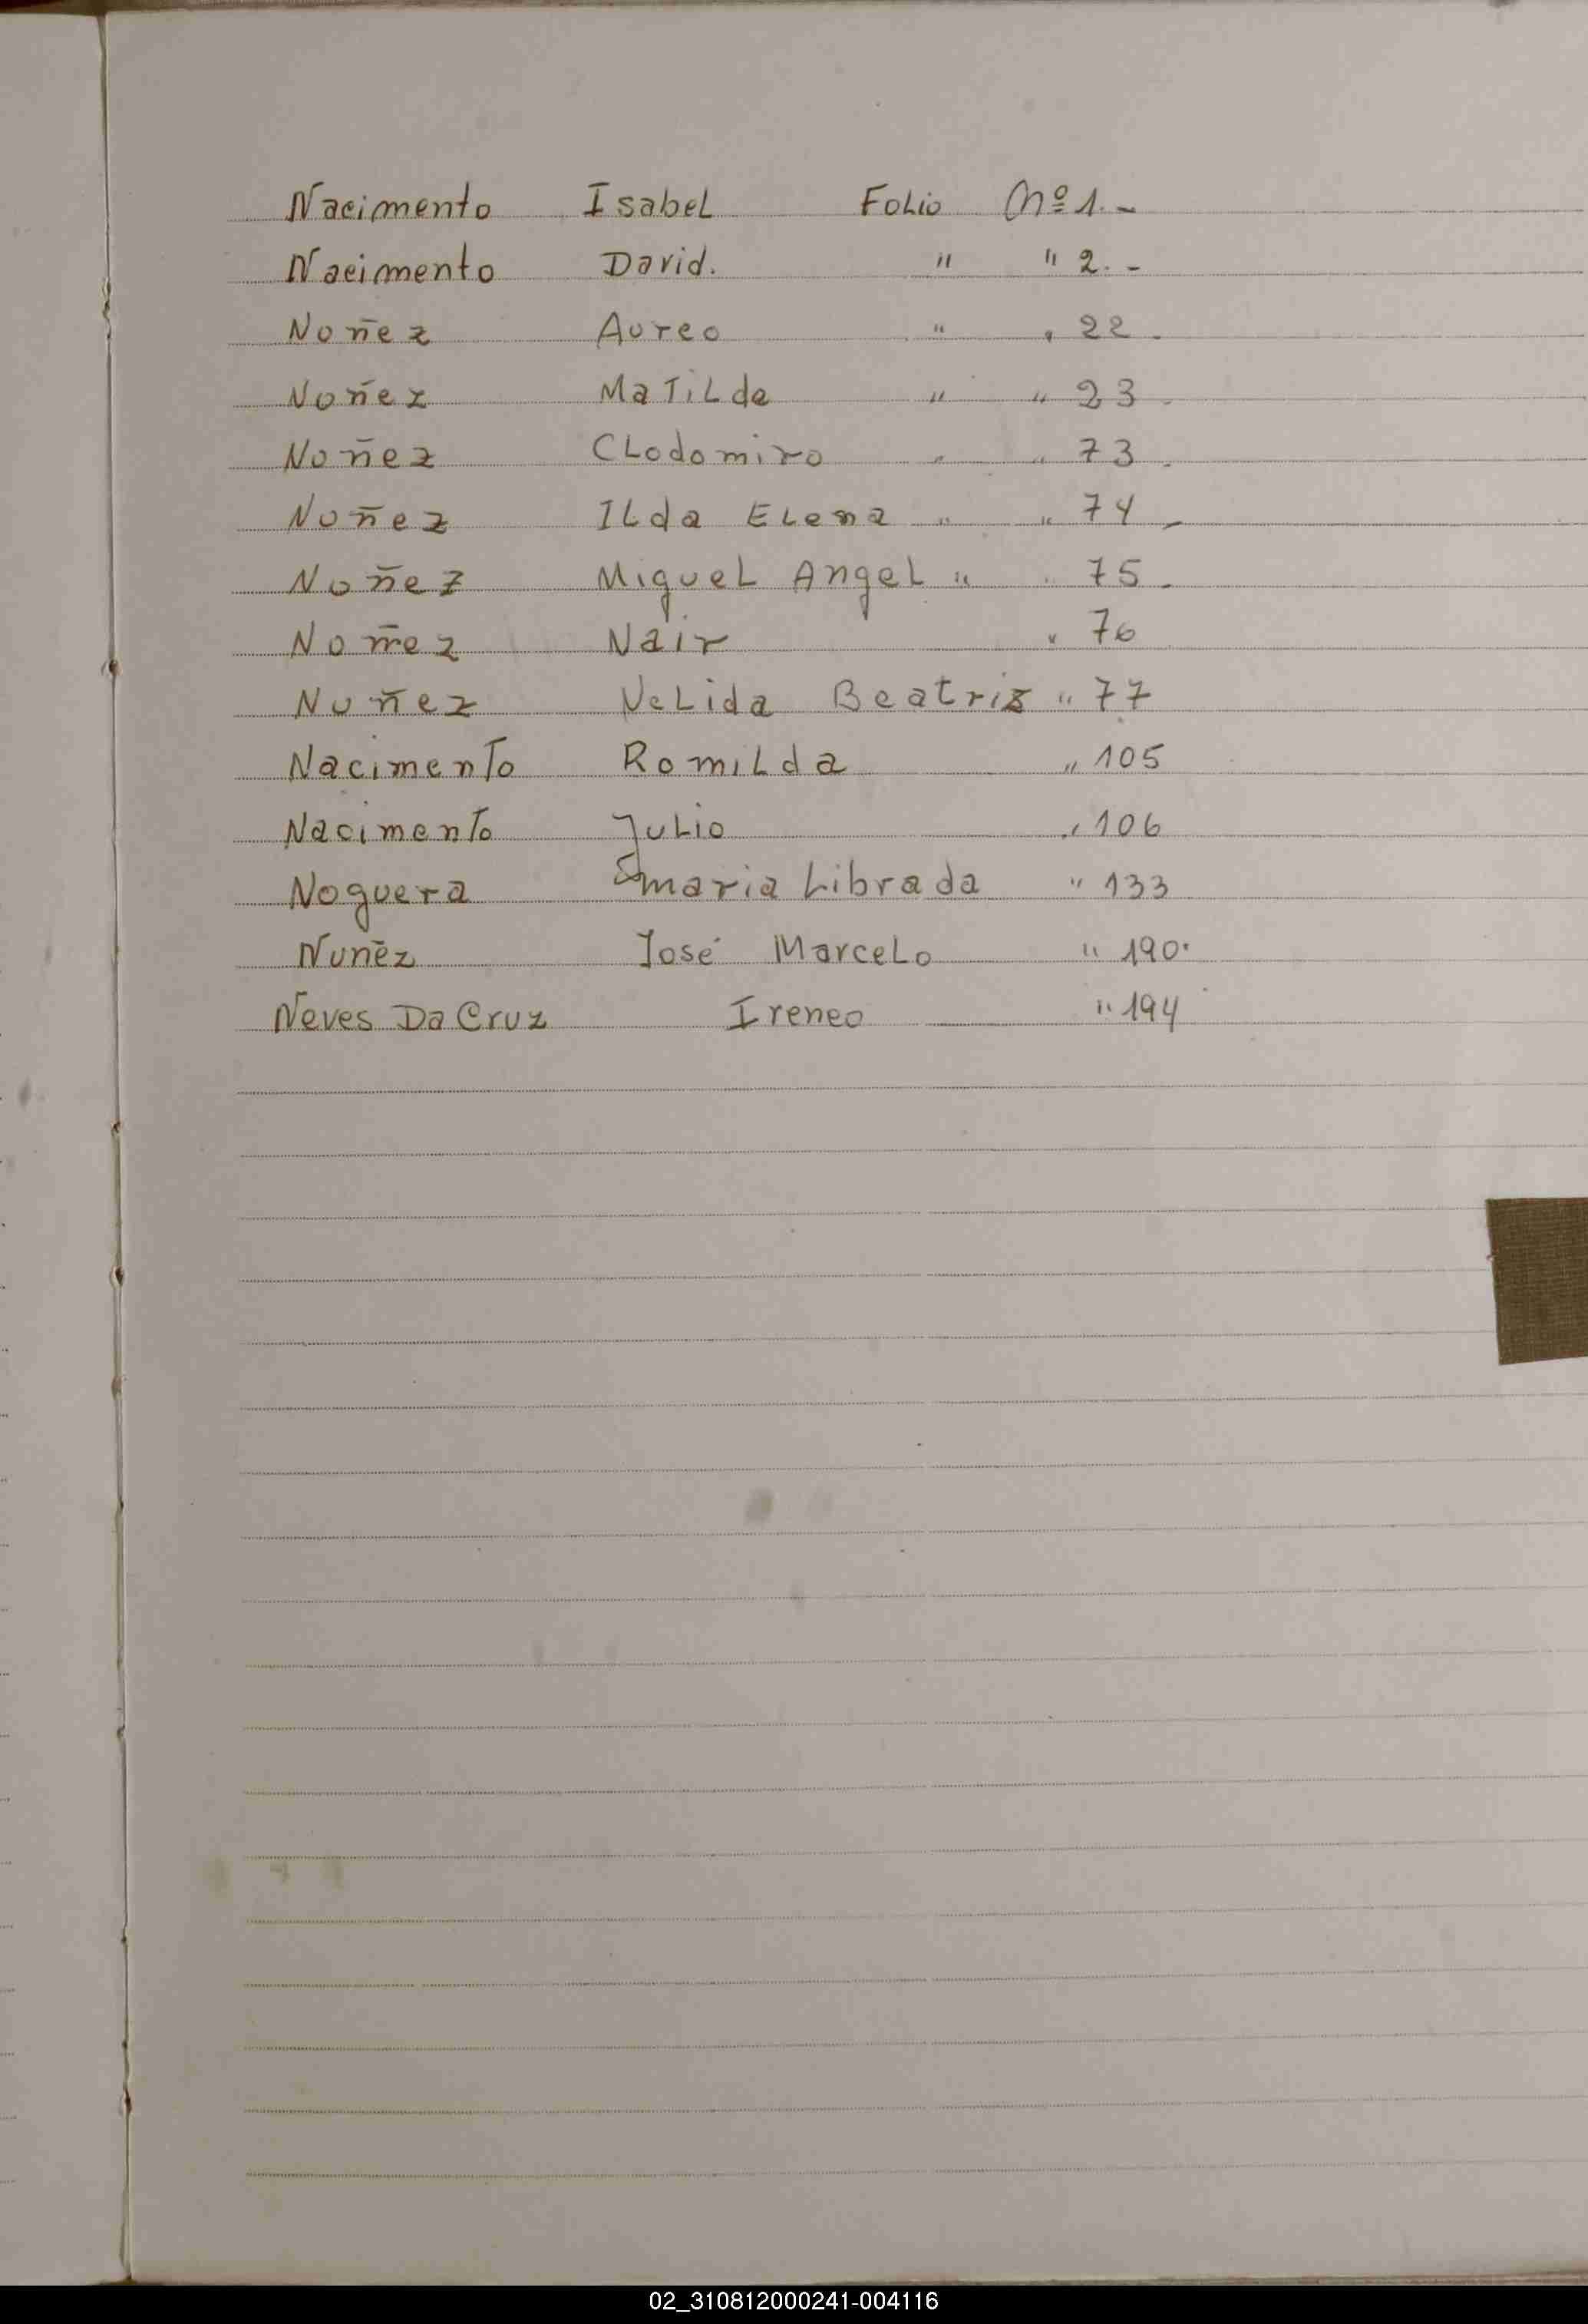 Nacimento Isabel Folio Nº 1.-
Nacimento David. " " 2.-
Noñez Aureo " " 22.
Noñez Matilde " " 23.
Noñez Clodomiro " " 73.
Nuñez Ilda Elena " " 74.
Noñez Miguel Angel " " 75.
Noñez Nair " 76
Nuñez Nelida Beatriz " 77
Nacimento Romilda " 105
Nacimento Julio " 106
Noguera Maria Librada " 133
Nuñez José Marcelo " 190.
Neves Da Cruz Ireneo " 194
02_310812000241-004116